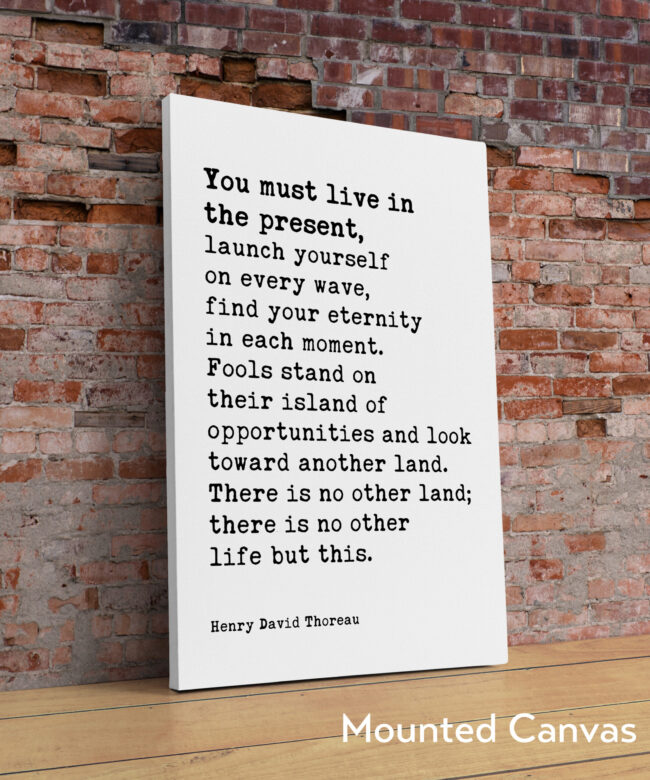 You must live in
the present,
launch yourself
on every wave,
find your eternity
in each moment.
Fools stand on
their island of
opportunities and look
toward another land.
There is no other land;
there is no other
life but this.
Henry David Thoreau
Mounted Canvas